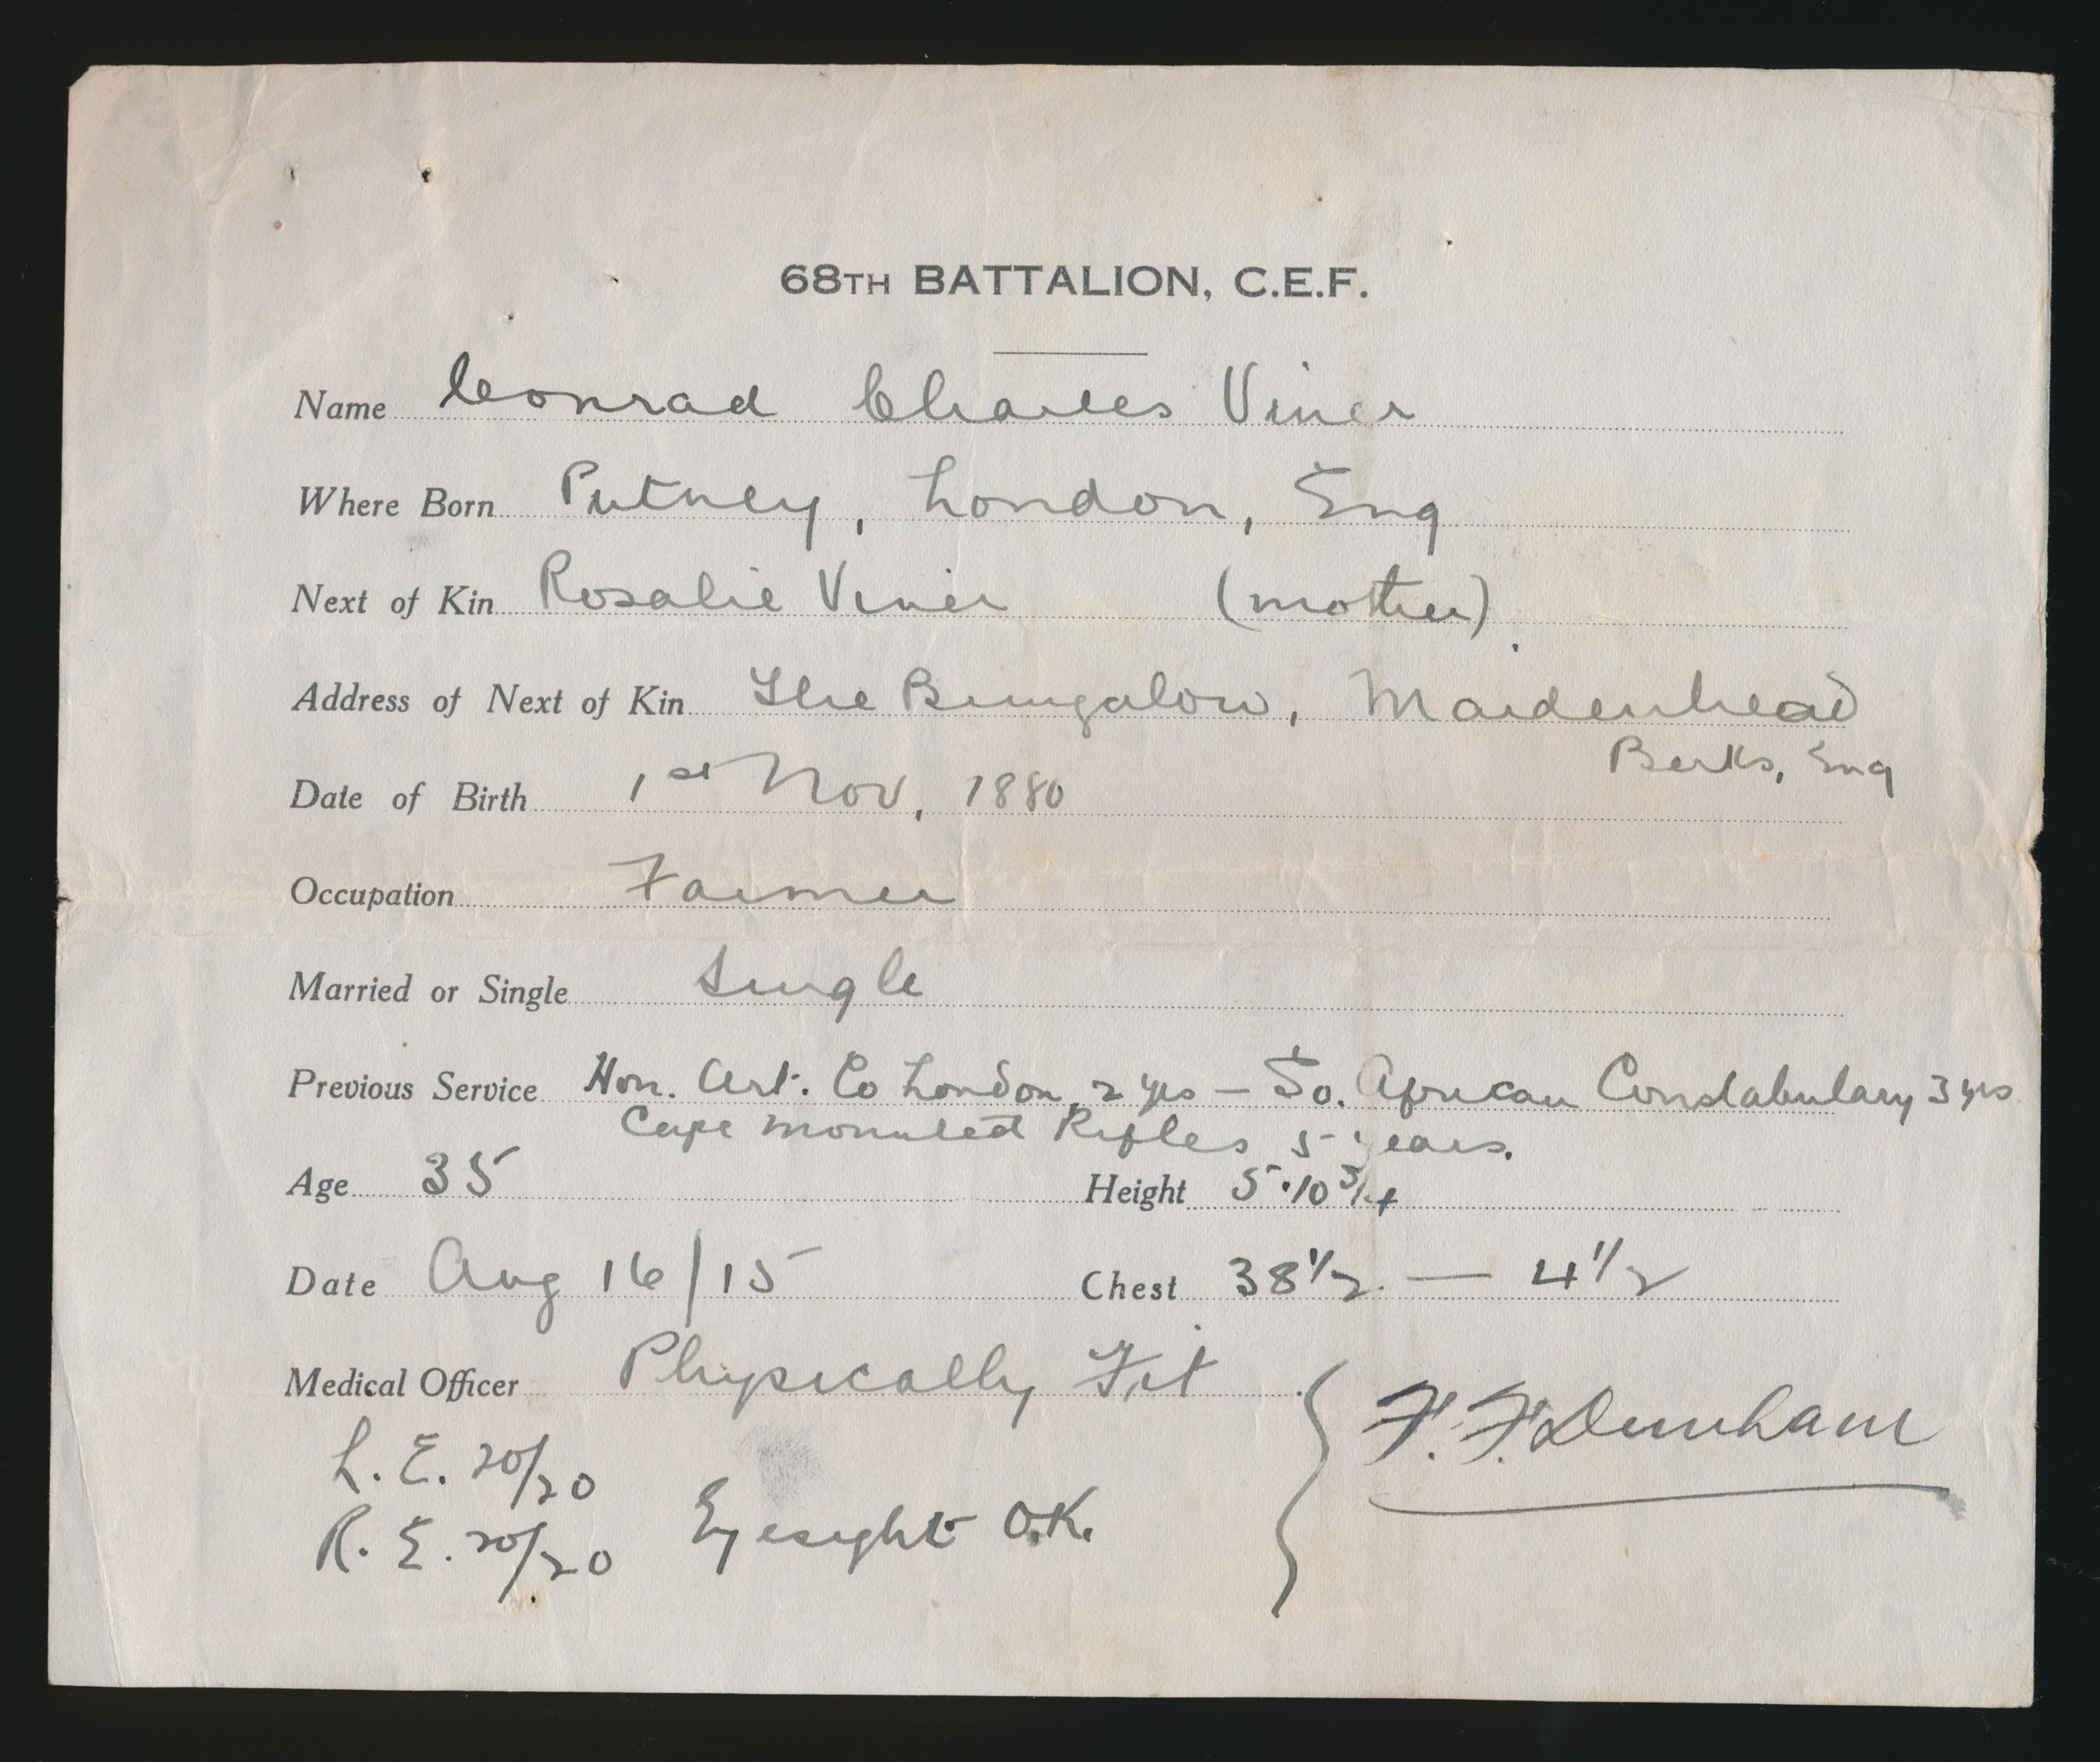 68TH BATTALION, C.E.F.
Name Conrad Charles Viner
Where Born Putney, London, Eng
Next of Kin Rosalie Viner (mother)
Address of Next of Kin The Bungalow, Maidenhead
Berks, Eng
Date of Birth 1st Nov, 1880
Occupation Farmer
Married or Single Single
Previous Service Hon. Art. Co London 2 yrs — So. African Constabulary 3 yrs
Cape Mounted Rifles 5 years.
Age 35 Height 5.10 3/4
Date Aug 16/15 Chest 38 1/2 — 4 1/2
Medical Officer Physically Fit
L. E. 20/20
R. E. 20/20 Eyesight O.K.
F. F. Dunham